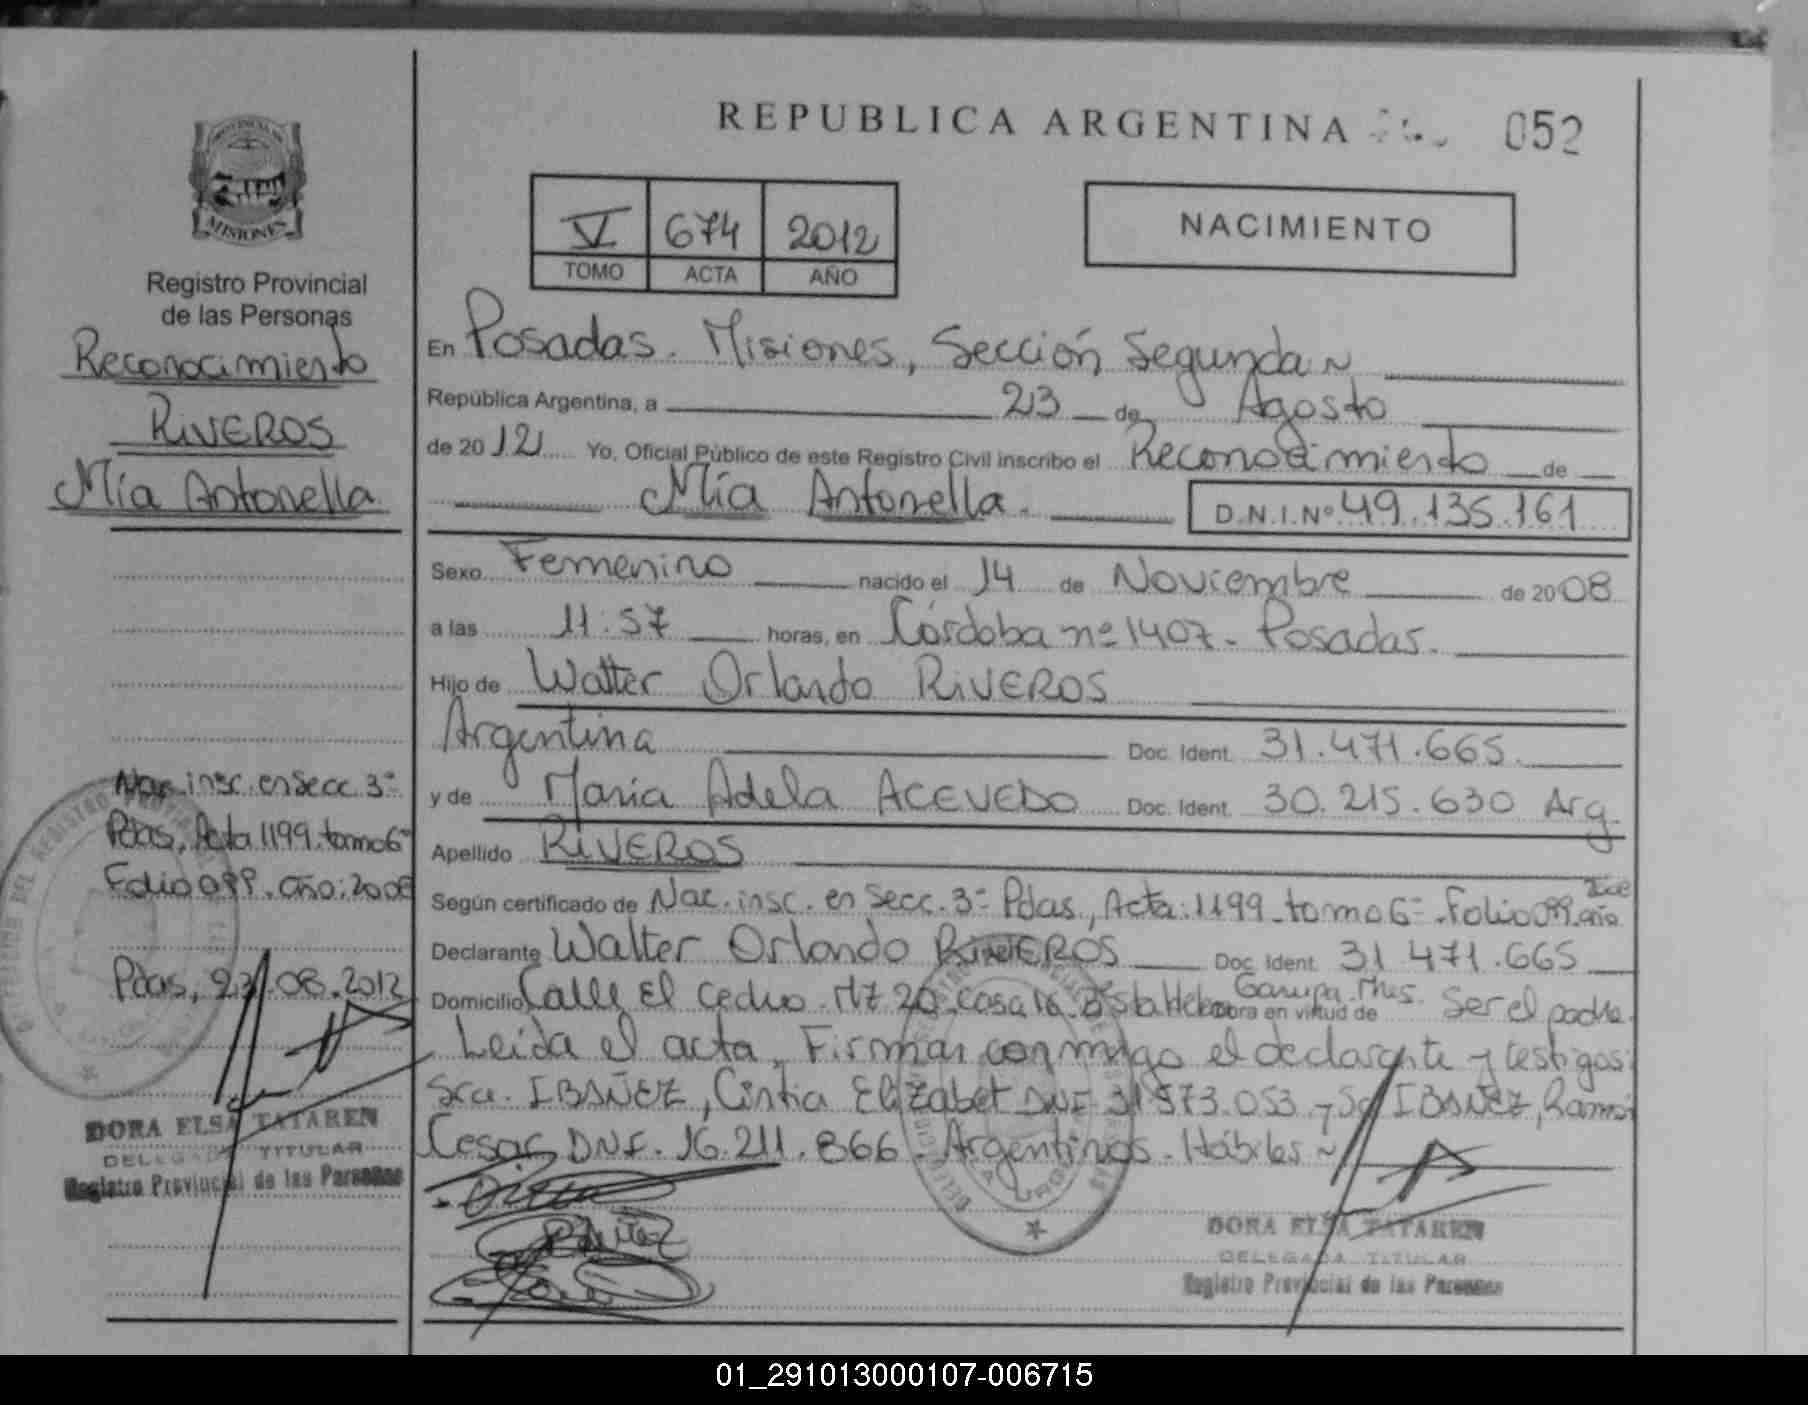 REPUBLICA ARGENTINA 052
PROVINCIA DE
MISIONES
Registro Provincial
de las Personas
Reconocimiento
RIVEROS
Mía Antonella
Nac. insc. en secc. 3ª
Pdas, Acta 1199. tomo 6º
Folio 099. año: 2008
Pdas, 23.08.2012
DORA ELSA TATAREN
DELEGADA TITULAR
Registro Provincial de las Personas
V 674 2012
TOMO ACTA AÑO
NACIMIENTO
En Posadas. Misiones, Sección Segunda
República Argentina, a 23 de Agosto
de 2012 Yo, Oficial Público de este Registro Civil inscribo el Reconocimiento de
Mía Antonella. D.N.I.Nº 49.135.161
Sexo Femenino nacido el 14 de Noviembre de 2008
a las 11:57 horas, en Córdoba nº 1407 - Posadas.
Hijo de Walter Orlando RIVEROS
Argentina Doc. Ident. 31.471.665.
y de María Adela ACEVEDO Doc. Ident. 30.215.630 Arg.
Apellido RIVEROS
Según certificado de Nac. insc. en Secc. 3ª Pdas, Acta: 1199 - tomo 6º - Folio 099. año 2008
Declarante Walter Orlando RIVEROS Doc. Ident. 31 471.665
Domicilio Calle El Cedro. Mz 20. casa 16. Bº Sta Helena Garupa. Mnes. obra en virtud de Ser el padre.
Leida el acta, Firman conmigo el declarante y testigos:
Sra. IBAÑEZ, Cintia Elizabet DNI 31 573.053 - y Sr IBAÑEZ, Ramón
Cesar DNI. 16.211.866. Argentinos. Hábiles
DORA ELSA TATAREN
DELEGADA TITULAR
Registro Provincial de las Personas
01_291013000107-006715